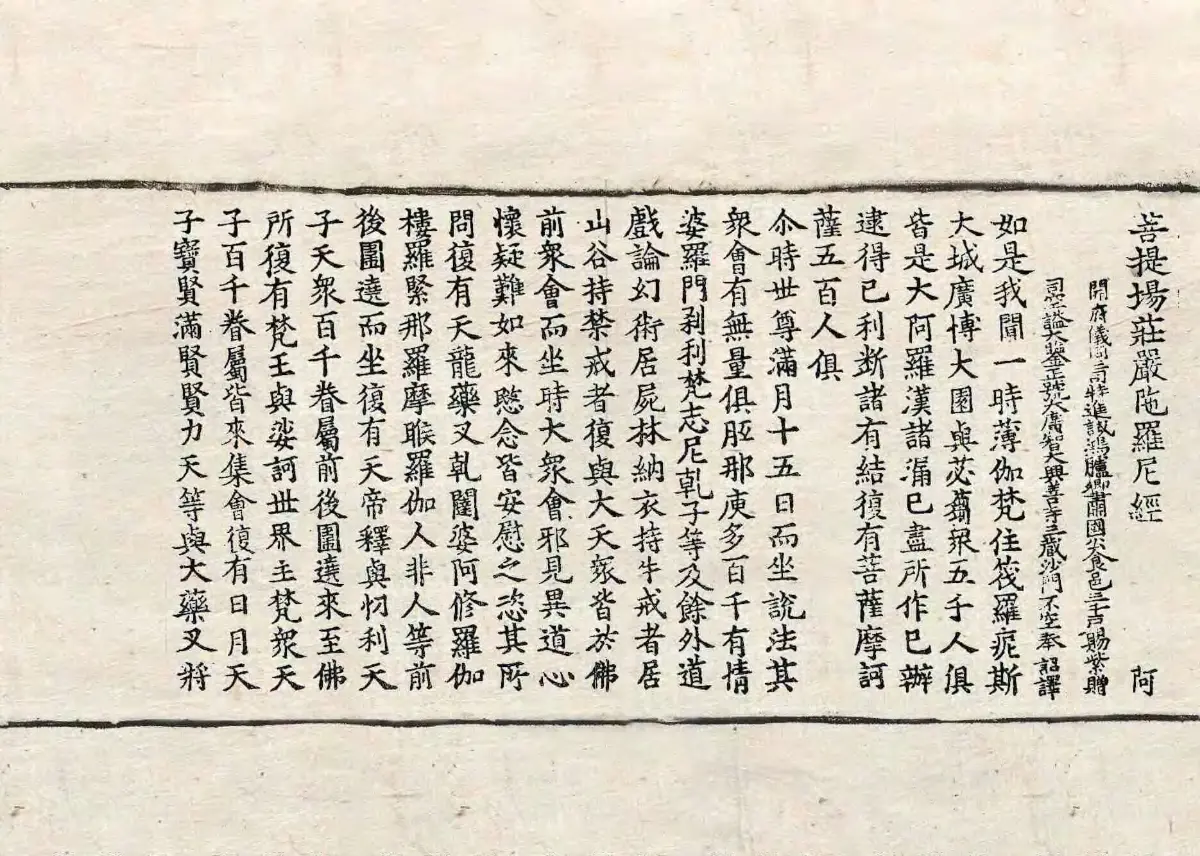 菩提場莊嚴陁羅尼經 阿
開府儀同三司特進試鴻臚卿肅國公食邑三千戶賜紫贈
司空謚大鑒正號大廣智大興善寺三藏沙門不空奉 詔譯
如是我聞一時薄伽梵住筏羅痆斯
大城廣博大園與苾蒭衆五千人俱
皆是大阿羅漢諸漏已盡所作已辦
逮得己利断諸有結復有菩薩摩訶
薩五百人俱
尒時世尊滿月十五日而坐說法其
衆會有無量俱胝那庾多百千有情
婆羅門刹利梵志尼乹子等及餘外道
戲論幻術居屍林納衣持牛戒者居
山谷持禁戒者復與大天衆皆於佛
前衆會而坐時大衆會邪見異道心
懷疑難如來愍念皆安慰之恣其所
問復有天龍藥叉乹闥婆阿修羅伽
樓羅緊那羅摩睺羅伽人非人等前
後圍遶而坐復有天帝釋與忉利天
子天衆百千眷屬前後圍遶來至佛
所復有梵王與娑訶世界主梵衆天
子百千眷屬皆來集會復有日月天
子寶賢滿賢賢力天等與大藥叉將